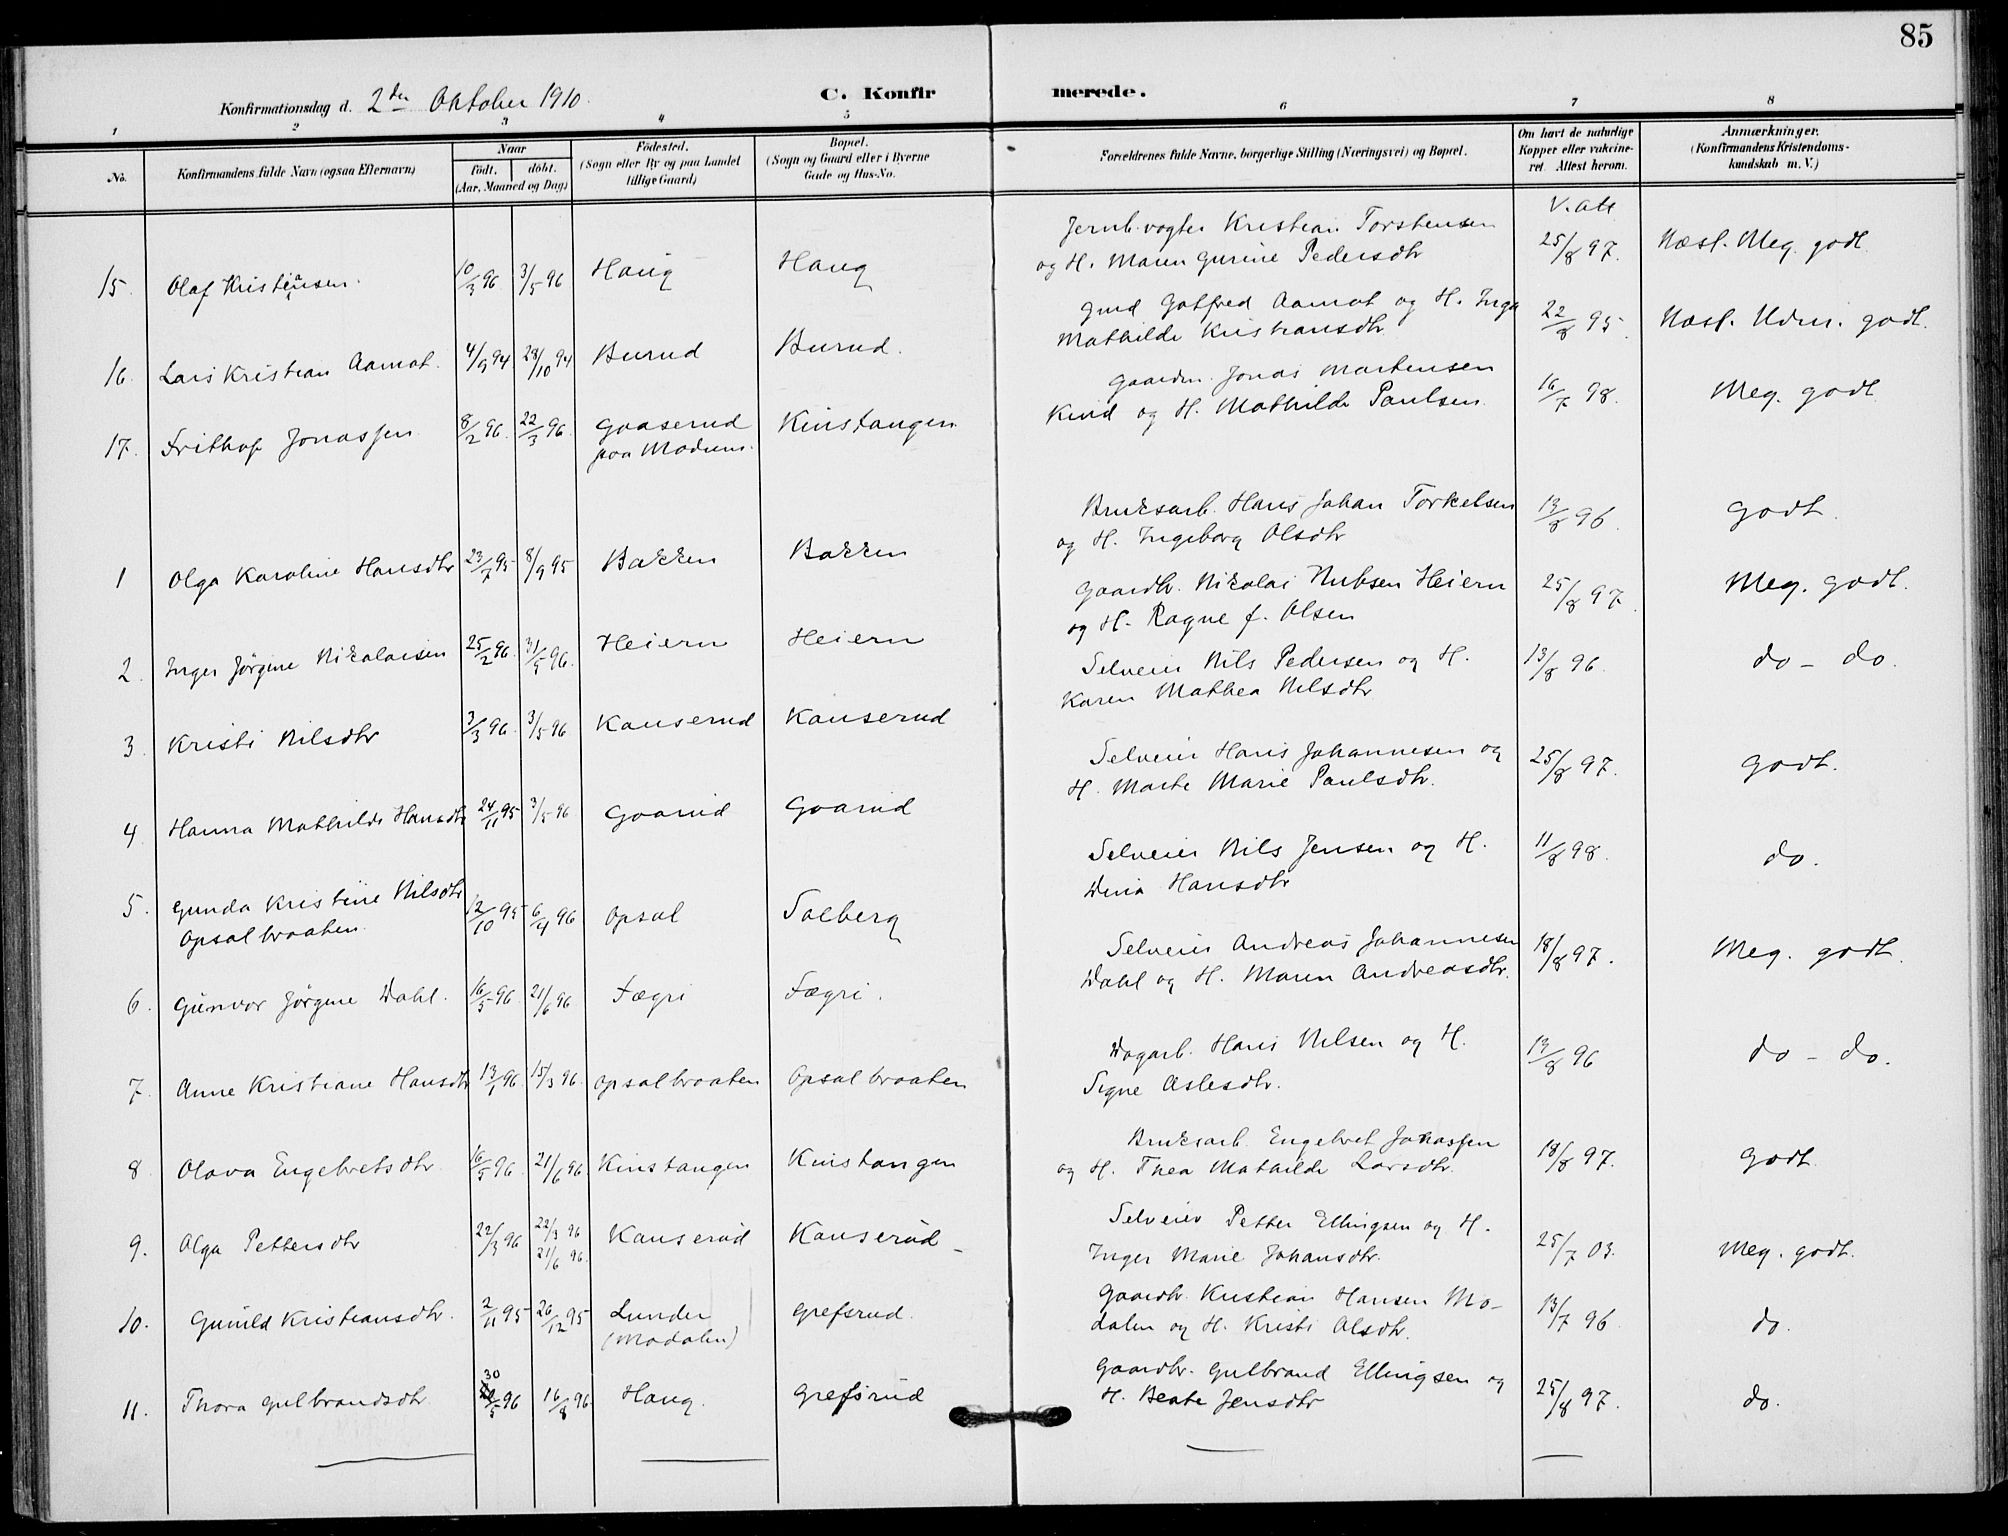 85
Konfirmationsdag d. 2den Oktober 1910. C. Konfirmerede.
1 2 3 4 5 6 7 8
No. Konfirmandens fulde Navn (ogsaa Efternavn) Naar født. døbt. (Aar, Maaned og Dag) Fødested. (Sogn eller By og paa Landet tillige Gaard) Bopæl. (Sogn og Gaard eller i Byerne Gade og Hus-No. Forældrenes fulde Navne, borgerlige Stilling (Næringsvei) og Bopæl. Om havt de naturlige Kopper eller vakcineret. Attest herom. Anmærkninger. (Konfirmandens Kristendomskundskab m. V.)
V. att
15. Olaf Kristiansen. 10/3 96 3/5 96 Haug Haug Jernb.vogter Kristian Torstensen
og H. Maren Gurine Pedersdtr 25/8 97. Næst. Meg. godt.
16. Lars Kristian Aamot. 4/9 94 28/10 94 Burud Burud. Gmd Gotfred Aamot og H. Inga
Mathilde Kristiansdtr. 22/8 95. Næst. Udm. godt.
17. Frithof Jonassen 8/2 96. 22/3 96. Gaaserud
paa Modum. Kinstangen Gaardm. Jonas Martensen
Kind og H. Mathilde Paulsen. 16/7 98. Meg. godt
1 Olga Karoline Hansdtr 23/7 95 8/9 95 Bakken Bakken Bruksarb. Hans Johan Torkelsen
og H. Ingeborg Olsdtr 13/8 96. Godt.
2. Inger Jørgine Nikolaisen 25/2 96. 31/5 96. Heiern Heiern Gaardbr. Nikolai Hubsen Heiern
og H. Ragne f. Olsen 25/8 97. Meg. godt.
3. Kristi Nilsdtr 3/3 96. 3/5 96 Kauserud Kauserud Selveier Nils Pedersen og H.
Karen Mathea Nilsdtr 13/8 96. do - do.
4. Hanna Mathilde Hansdtr 24/11 95 3/5 96 Goarud Goarud Selveier Hans Johannesen og
H. Marte Marie Paulsdtr. 25/8 97. Godt.
5. Gunda Kristine Nilsdtr
Opsalbraaten. 12/10 95 6/4 96 Opsal Solberg Selveier Nils Jensen og H.
Dina Hansdtr 11/8 98. do.
6. Gunvor Jørgine Dahl. 16/5 96. 21/6 96 Fægri Fægri. Selveier Andreas Johannesen
Dahl og H. Maren Andreasdtr. 18/8 97. Meg. godt.
7. Anne Kristiane Hansdtr 13/1 96. 15/3 96. Opsalbraaten Opsalbraaten Dagarb. Hans Nilsen og H.
Signe Aslesdtr. 13/8 96 do - do.
8. Olava Engebretsdtr. 16/5 96. 21/6 96 Kinstangen Kinstangen Bruksarb. Engebret Johassen
og H. Thea Mathilde Larsdtr. 18/8 97. Godt.
9. Olga Pettersdtr 22/3 96 22/3 96
21/6 96. Kauserud Kauserud Selveier Petter Ellingsen og H.
Inger Marie Johansdtr. 25/7 03. Meg. godt.
10. Gunild Kristiansdtr. 2/11 95 26/12 95 Lunder
(Modalen) Grefsrud. Gaardbr. Kristian Hansen Mo-
dalen og H. Kristi Olsdtr. 13/7 96. do.
11. Thora Gulbrandsdtr 30/5 96 16/8 96. Haug. Grefsrud Gaardbr. Gulbrand Ellingsen og
H. Beate Jensdtr 25/8 97. do.